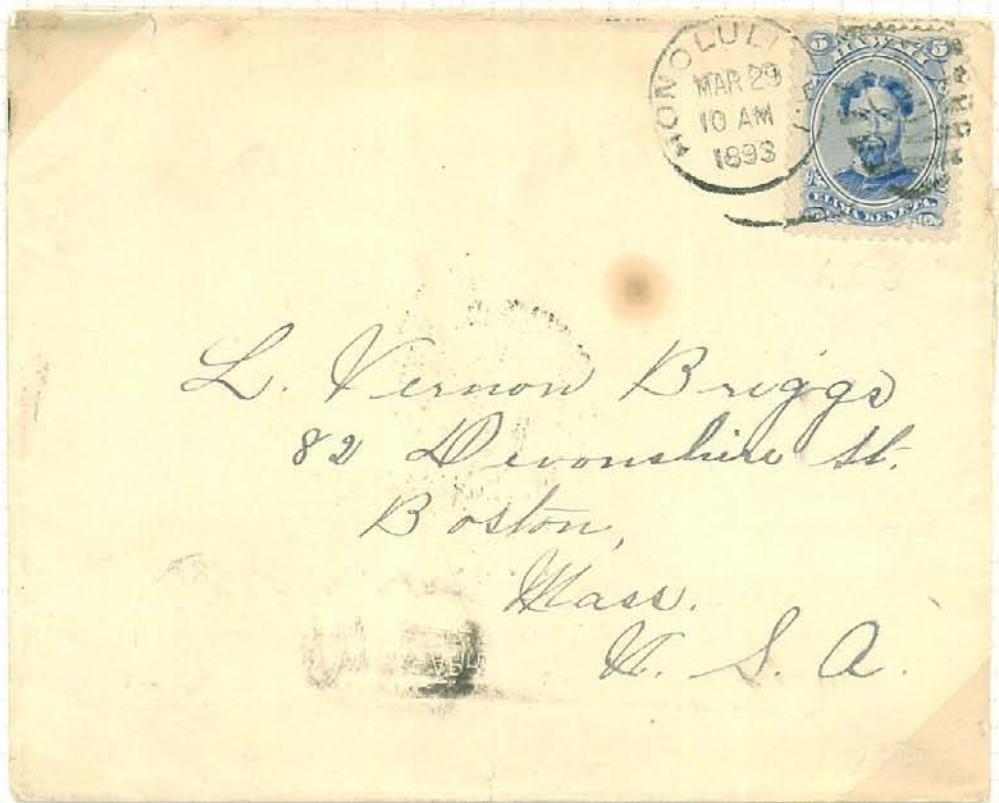 HONOLULU
MAR 29
10 AM
1893
5 HAWAII 5
ELIMA KENETA
L. Vernon Briggs
82 Devonshire St.
Boston,
Mass.
U. S. A.